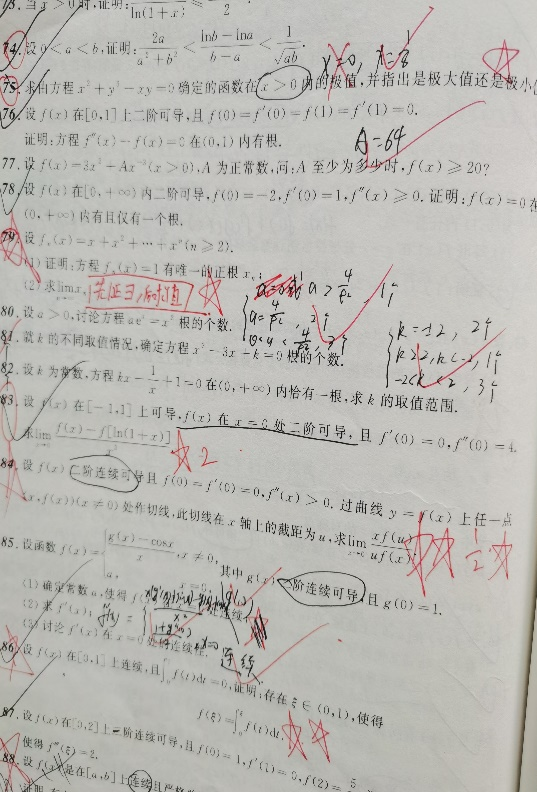 73. 当 x > 0 时,证明: ln(1+x) 2
74. 设 0 < a < b,证明: 2a/(a²+b²) < (lnb−lna)/(b−a) < 1/√ab
75. 求由方程 x³+y³−xy=0 确定的函数在 x > 0 内的极值,并指出是极大值还是极小
76. 设 f(x) 在[0,1]上二阶可导,且 f(0)=f′(0)=f(1)=f′(1)=0.
证明:方程 f″(x)−f(x)=0 在(0,1)内有根.
A=64
77. 设 f(x)=3x²+Ax⁻³(x>0),A 为正常数,问:A 至少为多少时, f(x)≥20?
78. 设 f(x) 在[0,+∞)内二阶可导,f(0)=−2,f′(0)=1,f″(x)≥0. 证明:f(x)=0 在
(0,+∞)内有且仅有一个根.
79. 设 fₙ(x)=x+x²+…+xⁿ(n≥2).
(1) 证明:方程 fₙ(x)=1 有唯一的正根 xₙ;
(2) 求lim xₙ.
80. 设 a>0,讨论方程 aeˣ=x² 根的个数.
a > 4/e², 1个
a = 4/e², 2个
81. 就 k 的不同取值情况,确定方程 x³−3x+k=0 根的个数.
k=±2, 2个
k>2,k<−2,1个
−2<k<2, 3个
82. 设 k 为常数,方程 kx−1/x+1=0 在(0,+∞)内恰有一根,求 k 的取值范围.
83. 设 f(x) 在[−1,1]上可导,f(x) 在 x=0 处二阶可导,且 f′(0)=0,f″(0)=4.
求lim (f(x)−f[ln(1+x)])/x³.
2
84. 设 f(x) 二阶连续可导且 f(0)=f′(0)=0,f″(x)>0. 过曲线 y=f(x) 上任一点
(x,f(x))(x≠0)处作切线,此切线在 x 轴上的截距为 u,求lim xf(u)/uf(x).
1/2
85. 设函数 f(x)={(g(x)−cosx)/x, x≠0, a, x=0, 其中 g(x) 二阶连续可导,且 g(0)=1.
(1) 确定常数 a,使得 f(x) 在 x=0 处连续;
(2) 求 f′(x);
(3) 讨论 f′(x) 在 x=0 处的连续性.
连续
86. 设 f(x) 在[0,1]上连续,且∫f(t)dt=0,证明:存在 ξ∈(0,1),使得
f(ξ)=∫f(t)dt.
87. 设 f(x) 在[0,2]上三阶连续可导,且 f(0)=1,f′(1)=0,f(2)=5
使得 f‴(ξ)=2.
88. 设 f(x) 是在[a,b]上连续且严格